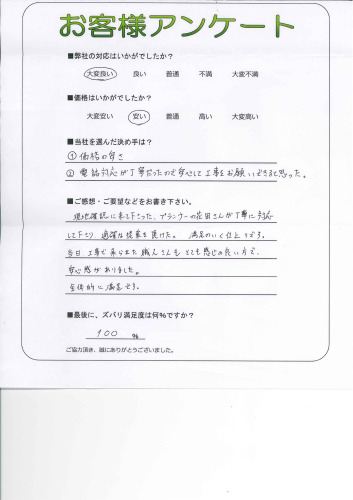 お客様アンケート
■弊社の対応はいかがでしたか？
大変良い 良い 普通 不満 大変不満
■価格はいかがでしたか？
大変安い 安い 普通 高い 大変高い
■当社を選んだ決め手は？
①価格の安さ
②電話対応が丁寧だったので安心して工事をお願いできると思った。
■ご感想・ご要望などをお書き下さい。
現地確認に来て下さった、プランナーの花田さんが丁寧に対応
して下さり、適確な提案を頂けた。 満足のいく仕上りです。
当日工事で来られた職人さんもとても感じの良い方で、
安心感がありました。
全体的に満足です。
■最後に、ズバリ満足度は何％ですか？
100 %
ご協力頂き、誠にありがとうございました。